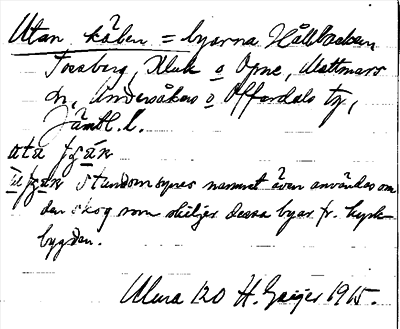 Utan käben = byarna Hållbacken
Fossberg, Kluk o Opne, Mattmars
sn, Undersåkers o Offerdals tg,
Jämtl. l.
Stundom synes namnet även användas om
den skog som skiljer dessa byar fr. kyrk
bygden.
Ulma 120 H. Geijer 1915.